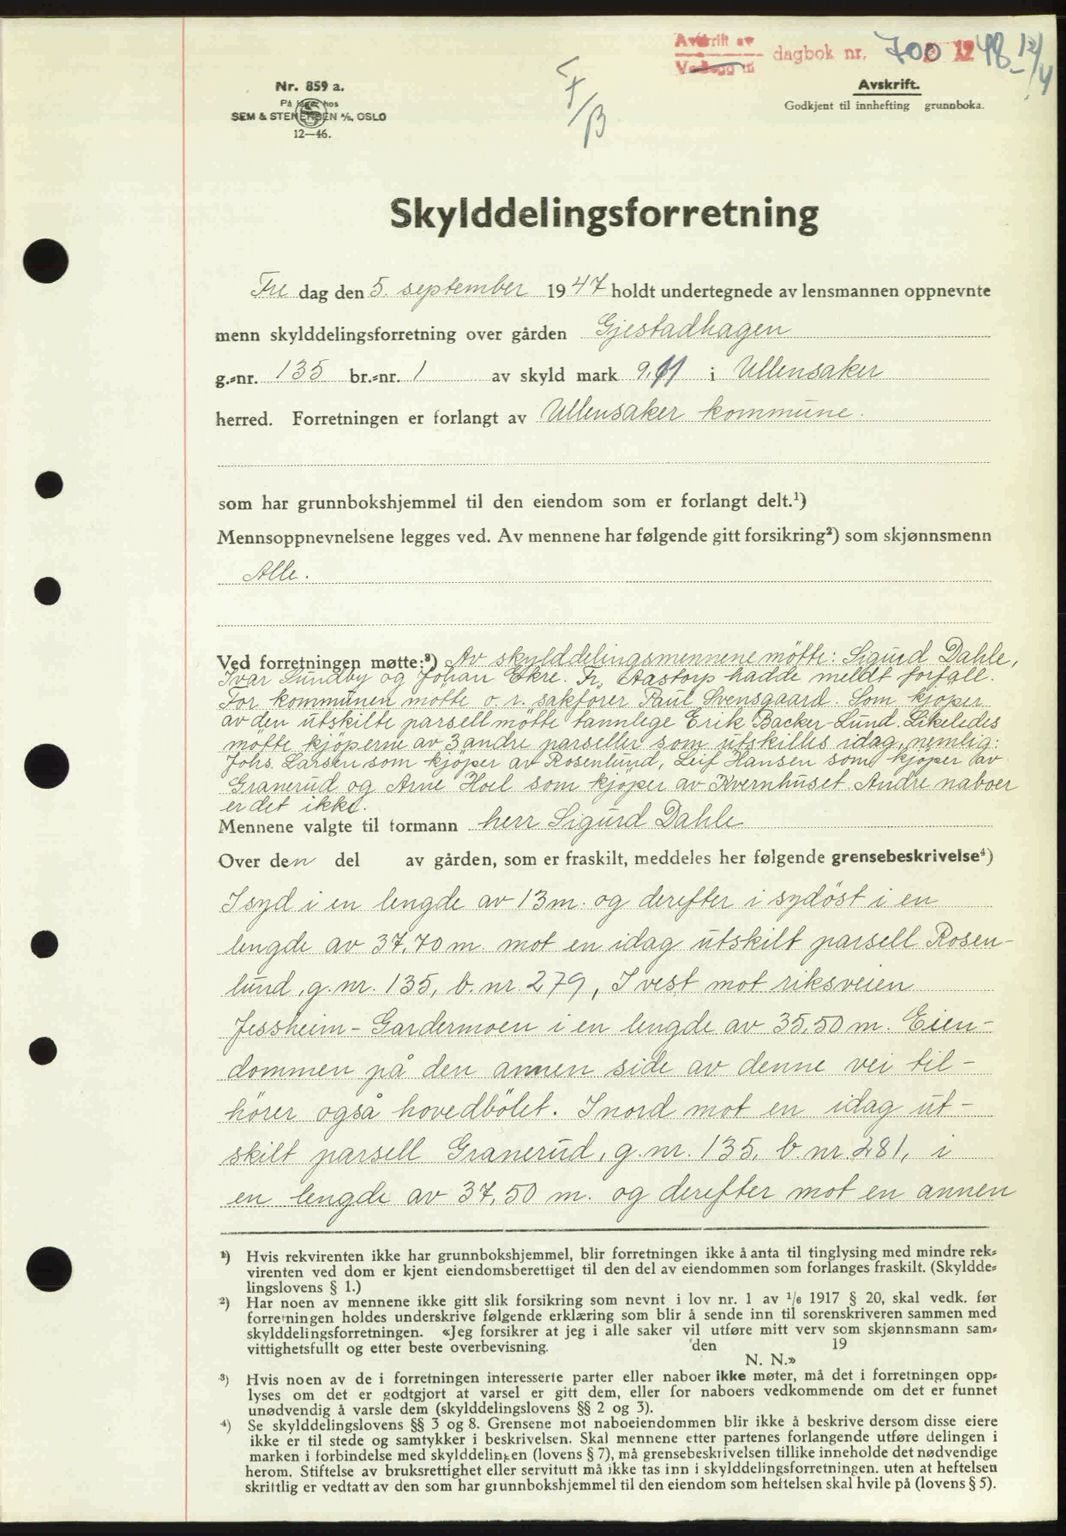 Avskrift av
dagbok nr. 700 1948 12/4
Nr. 859 a.
På lager hos
SEM & STENERSEN A/S, OSLO
12—46.
Avskrift.
Godkjent til innhefting grunnboka.
Skylddelingsforretning
Fre dag den 5. september 1947 holdt undertegnede av lensmannen oppnevnte
menn skylddelingsforretning over gården Gjestadhagen
g.-nr. 135 br.-nr. 1 av skyld mark 9,11 i Ullensaker
herred. Forretningen er forlangt av Ullensaker kommune.
som har grunnbokshjemmel til den eiendom som er forlangt delt.¹)
Mennsoppnevnelsene legges ved. Av mennene har følgende gitt forsikring²) som skjønnsmenn
Alle.
Ved forretningen møtte:³) Av skylddelingsmennene møtte: Sigurd Dahle,
Ivar Sundby og Johan Ekre. Fr. Aastorp hadde meldt forfall.
For kommunen møtte o. r. sakfører Paul Svensgaard. Som kjøper
av den utskilte parsell møtte tannlege Erik Backer-Lund. Likeledes
møtte kjøperne av 3 andre parseller som utskilles idag, nemlig:
Johs. Larsen som kjøper av Rosenlund, Leif Hansen som kjøper av
Granerud og Arne Hoel som kjøper av Kvernhuset. Andre naboer
er det ikke.
Mennene valgte til formann herr Sigurd Dahle
Over den del av gården, som er fraskilt, meddeles her følgende grensebeskrivelse⁴)
I syd i en lengde av 13 m. og derefter i sydöst i en
lengde av 37,70 m. mot en idag utskilt parsell Rosen-
lund, g. nr. 135, b. nr. 279, I vest mot riksveien
Jessheim - Gardermoen i en lengde av 35,50 m. Eien-
dommen på den annen side av denne vei til-
hörer også hovedbölet. I nord mot en idag ut-
skilt parsell Granerud, g. nr. 135, b. nr. 281, i
en lengde av 37,50 m. og derefter mot en annen
¹) Hvis rekvirenten ikke har grunnbokshjemmel, blir forretningen ikke å anta til tinglysing med mindre rek-
virenten ved dom er kjent eiendomsberettiget til den del av eiendommen som forlanges fraskilt. (Skyldde-
lingslovens § 1.)
²) Har noen av mennene ikke gitt slik forsikring som nevnt i lov nr. 1 av ¹/₆ 1917 § 20, skal vedk. før
forretningen holdes underskrive følgende erklæring som blir å sende inn til sorenskriveren sammen med
skylddelingsforretningen. «Jeg forsikrer at jeg i alle saker vil utføre mitt verv som skjønnsmann sam-
vittighetsfullt og etter beste overbevisning. den 19
N. N.»
³) Hvis noen av de i forretningen interesserte parter eller naboer ikke møter, må det i forretningen opp-
lyses om det er godtgjort at varsel er gitt dem, eller for naboers vedkommende om det er funnet
unødvendig å varsle dem (skylddelingslovens §§ 2 og 3).
⁴) Se skylddelingslovens §§ 3 og 8. Grensene mot naboeiendommen blir ikke å beskrive dersom disse eiere
ikke er til stede og samtykker i beskrivelsen. Skal mennene etter partenes forlangende utføre delingen i
marken i forbindelse med skylddelingen (lovens § 7), må grensebeskrivelsen tillike inneholde det nødvendige
herom. Stiftelse av bruksrettighet eller servitutt må ikke tas inn i skylddelingsforretningen. uten at heftelsen
skriftlig er vedtatt av den som har grunnbokshjemmel til den eiendom som heftelsen skal hvile på (lovens § 5).